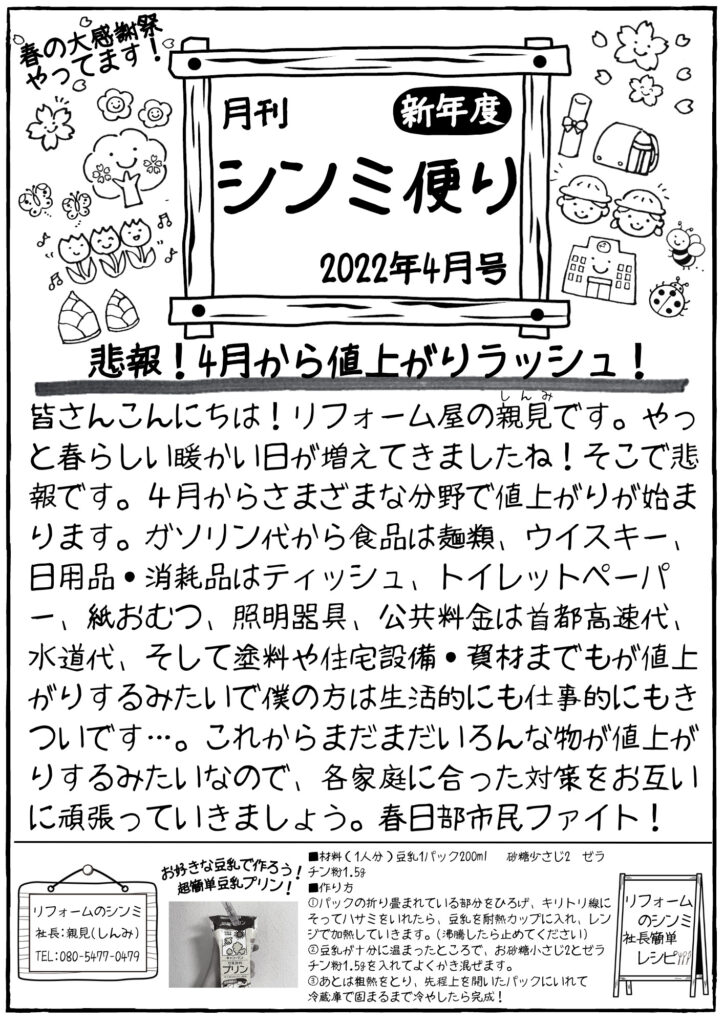 春の大感謝祭
やってます！
月刊
新年度
シンミ便り
2022年4月号
悲報！4月から値上がりラッシュ！
しんみ
皆さんこんにちは！リフォーム屋の親見です。やっ
と春らしい暖かい日が増えてきましたね！そこで悲
報です。４月からさまざまな分野で値上がりが始ま
ります。ガソリン代から食品は麺類、ウイスキー、
日用品・消耗品はティッシュ、トイレットペーパ
ー、紙おむつ、照明器具、公共料金は首都高速代、
水道代、そして塗料や住宅設備・資材までもが値上
がりするみたいで僕の方は生活的にも仕事的にもき
ついです…。これからまだまだいろんな物が値上が
りするみたいなので、各家庭に合った対策をお互い
に頑張っていきましょう。春日部市民ファイト！
リフォームのシンミ
社長：親見（しんみ）
TEL：080-5477-0479
お好きな豆乳で作ろう！
超簡単豆乳プリン！
プリン
■材料（1人分）豆乳1パック200ml　砂糖少さじ2　ゼラ
チン粉1.5g
■作り方
①パックの折り畳まれている部分をひろげ、キリトリ線に
そってハサミをいれたら、豆乳を耐熱カップに入れ、レン
ジで加熱していきます。（沸騰したら止めてください）
②豆乳が十分に温まったところで、お砂糖小さじ2とゼラ
チン粉1.5gを入れてよくかき混ぜます。
③あとは粗熱をとり、先程上を開いたパックにいれて
冷蔵庫で固まるまで冷やしたら完成！
リフォーム
のシンミ
社長簡単
レシピ!!!